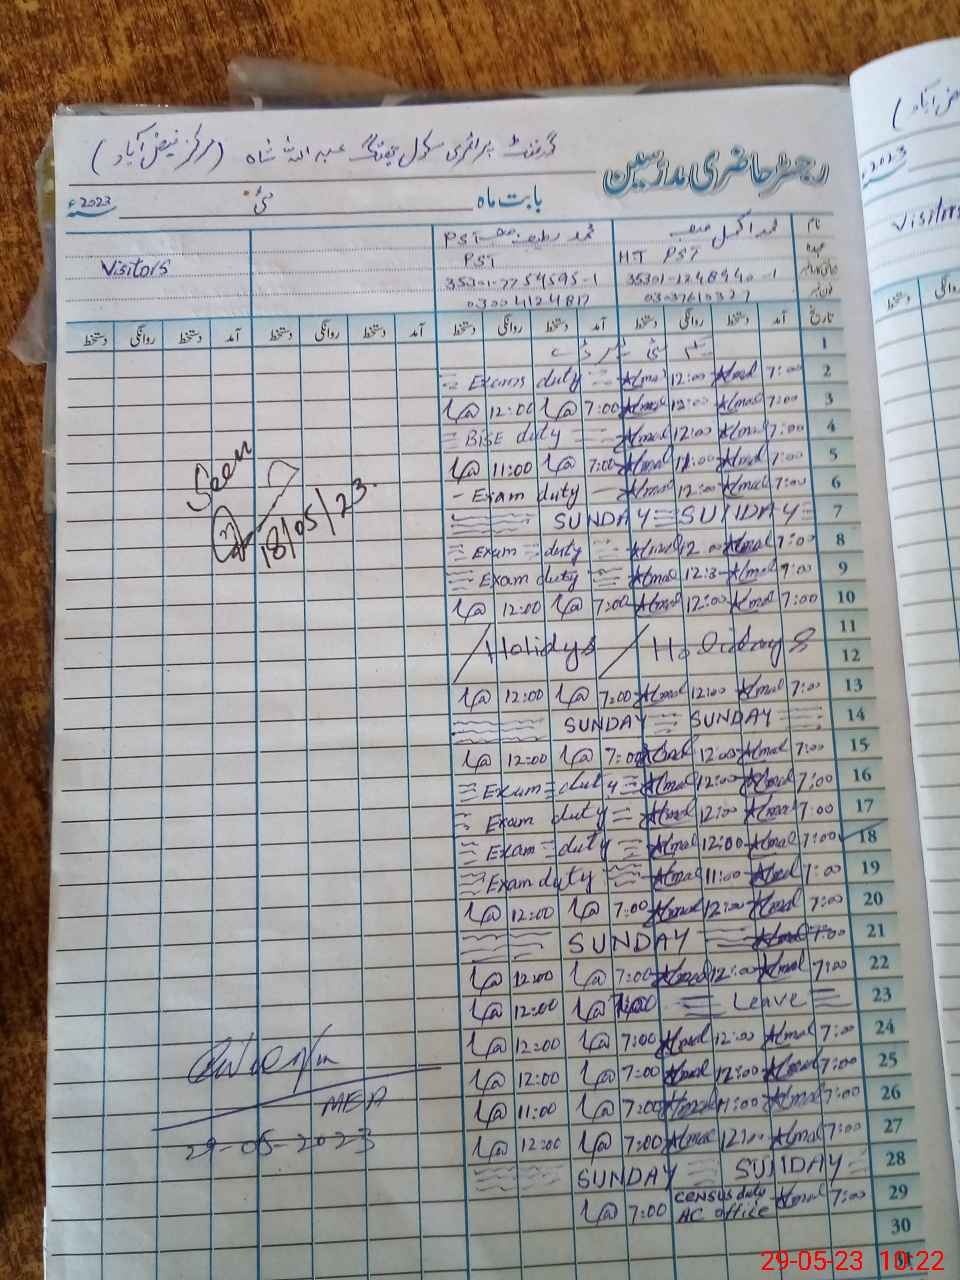 گورنمنٹ پرائمری سکول جھنگ عبداللہ شاہ (مرکز فیض آباد)
رجسٹر حاضری مدرسین
بابت ماہ مئی 2023ء
نام محمد اکمل صاحب محمد لطیف صاحب PST
عہدہ HT PST PST Visitors
35301-7754595-1
03004124817
تاریخ آمد دستخط روانگی دستخط آمد دستخط روانگی دستخط آمد دستخط روانگی دستخط آمد دستخط روانگی دستخط
1
= Exams duty = Akmal 12:00 Akmal 7:00 2
12:00 7:00 Akmal 12:00 Akmal 7:00 3
= BISE duty = Akmal 12:00 Akmal 7:00 4
11:00 7:00 Akmal 11:00 Akmal 7:00 5
- Exam duty - Akmal 12:00 Akmal 7:00 6
SUNDAY = SUNDAY = 7
= Exam = duty = Akmal 12 00 Akmal 7:00 8
= Exam duty = Akmal 12:3 Akmal 7:00 9
12:00 7:00 Akmal 12:00 Akmal 7:00 10
11
Holidys Holidays
12
12:00 7:00 Akmal 12:00 Akmal 7:00 13
SUNDAY = SUNDAY = 14
12:00 7:00 Akmal 12:00 Akmal 7:00 15
= Exam = duty = Akmal 12:00 Akmal 7:00 16
= Exam duty = Akmal 12:00 Akmal 7:00 17
= Exam = duty = Akmal 12:00 Akmal 7:00 18
= Exam duty = Akmal 11:00 Akmal 7:00 19
12:00 7:00 Akmal 12:00 Akmal 7:00 20
SUNDAY = Akmal 7:00 21
12:00 7:00 Akmal 12:00 Akmal 7:00 22
12:00 7:00 = Leave = 23
12:00 7:00 Akmal 12:00 Akmal 7:00 24
12:00 7:00 Akmal 12:00 Akmal 7:00 25
11:00 7:00 Akmal 11:00 Akmal 7:00 26
12:00 7:00 Akmal 12:00 Akmal 7:00 27
SUNDAY = SUNDAY = 28
7:00 CENSUS duty AC office Akmal 7:00 29
30
31
Seen
18/05/23
MEA
29-05-2023
2023
Visitors
29-05-23 10:22